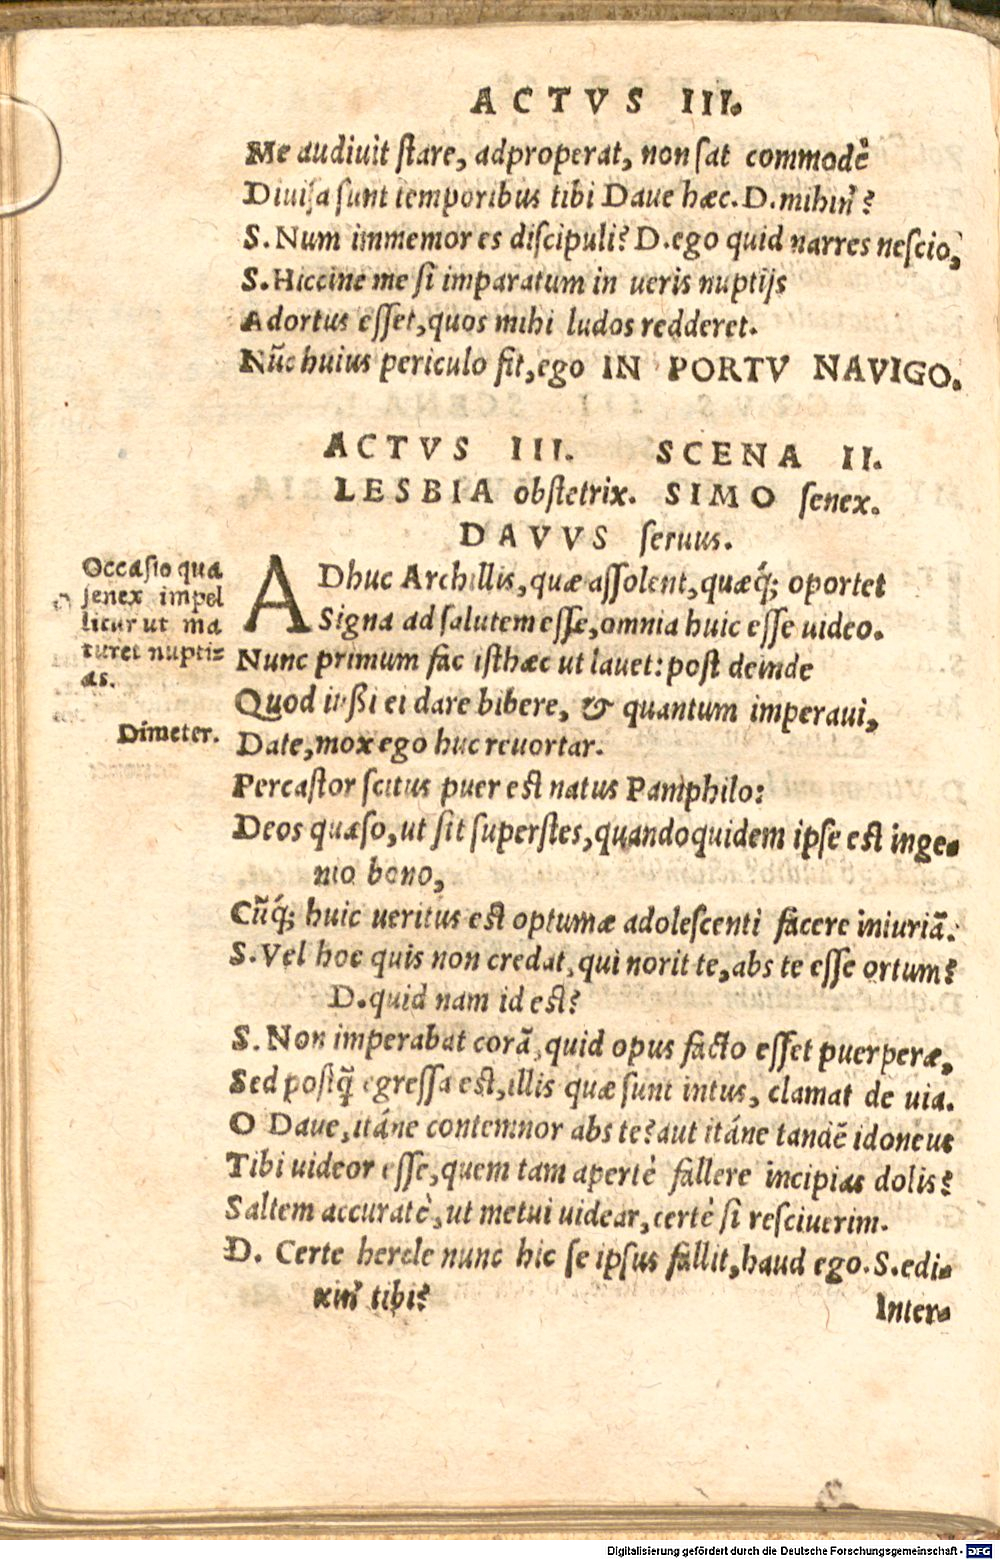 ACTVS III.
Me audiuit stare, adproperat, non sat commodè
Diuisa sunt temporibus tibi Daue hæc. D. mihin'?
S. Num immemor es discipuli? D. ego quid narres nescio,
S. Hiccine me si imparatum in ueris nuptijs
Adortus esset, quos mihi ludos redderet.
Nūc huius periculo fit, ego IN PORTV NAVIGO.
ACTVS III. SCENA II.
LESBIA obstetrix. SIMO senex.
DAVVS seruus.
Occasio qua
senex impel
litur ut ma
turet nupti-
as.
ADhuc Archillis, quæ assolent, quæq́; oportet
Signa ad salutem esse, omnia huic esse uideo.
Nunc primum fac isthæc ut lauet: post deinde
Quod iußi ei dare bibere, & quantum imperaui,
Dimeter.
Date, mox ego huc reuortar.
Percastor scitus puer est natus Pamphilo:
Deos quæso, ut sit superstes, quandoquidem ipse est inge-
nio bono,
Cūq́; huic ueritus est optumæ adolescenti facere iniuriā.
S. Vel hoc quis non credat, qui norit te, abs te esse ortum?
D. quid nam id est?
S. Non imperabat corā, quid opus facto esset puerperæ,
Sed postq̄ egressa est, illis quæ sunt intus, clamat de uia.
O Daue, itáne contemnor abs te? aut itáne tandē idoneus
Tibi uideor esse, quem tam apertè fallere incipias dolis?
Saltem accuratè, ut metui uidear, certè si resciuerim.
D. Certe hercle nunc hic se ipsus fallit, haud ego. S. edi-
xin' tibi?
Inter-
Digitalisierung gefördert durch die Deutsche Forschungsgemeinschaft - DFG